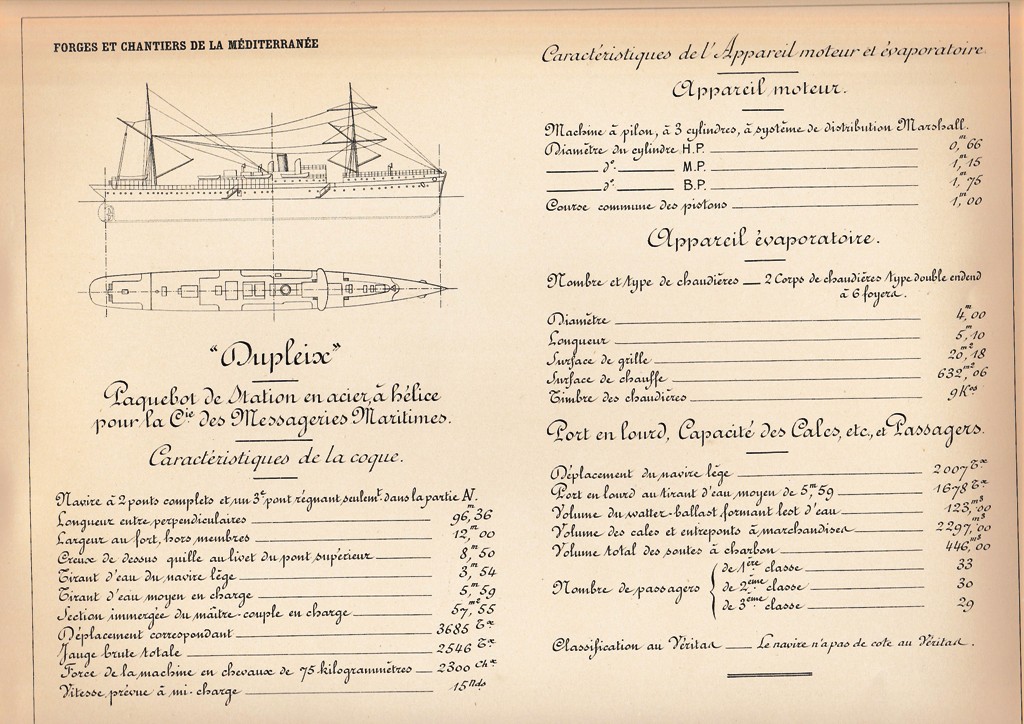 FORGES ET CHANTIERS DE LA MÉDITERRANÉE
"Dupleix"
Paquebot de Station en acier, à hélice
pour la Cie des Messageries Maritimes.
Caractéristiques de la coque.
Navire à 2 ponts complets et un 3e pont régnant seulemt. dans la partie Æ.
Longueur entre perpendiculaires 96,m36
Largeur au fort, hors membres 12,m00
Creux de dessus quille au livet du pont supérieur 8,m50
Tirant d'eau du navire lège 3,m54
Tirant d'eau moyen en charge 5,m59
Section immergée du maître-couple en charge 57,m255
Déplacement correspondant 3685 Tx
Jauge brute totale 2546 Tx
Force de la machine en chevaux de 75 kilogrammètres 2300 chx
Vitesse prévue à mi-charge 15 nds
Caractéristiques de l'Appareil moteur et évaporatoire
Appareil moteur.
Machine à pilon, à 3 cylindres, à système de distribution Marshall.
Diamètre du cylindre H.P. 0,m66
do. M.P. 1,m15
do. B.P. 1,m75
Course commune des pistons 1,m00
Appareil évaporatoire.
Nombre et type de chaudières 2 Corps de chaudières type double endend
à 6 foyers.
Diamètre 4,m00
Longueur 5,m10
Surface de grille 20,m218
Surface de chauffe 632,m206
Timbre des chaudières 9 Kos
Port en lourd, Capacité des Cales, etc., et Passagers.
Déplacement du navire lège 2007 Tx
Port en lourd au tirant d'eau moyen de 5,m59 1678 Tx
Volume du watter-ballast formant lest d'eau 123,m300
Volume des cales et entreponts à marchandises 2297,m300
Volume total des soutes à charbon 446,m300
Nombre de passagers de 1ère classe 33
de 2ème classe 30
de 3ème classe 29
Classification au Véritas Le navire n'a pas de cote au Véritas.